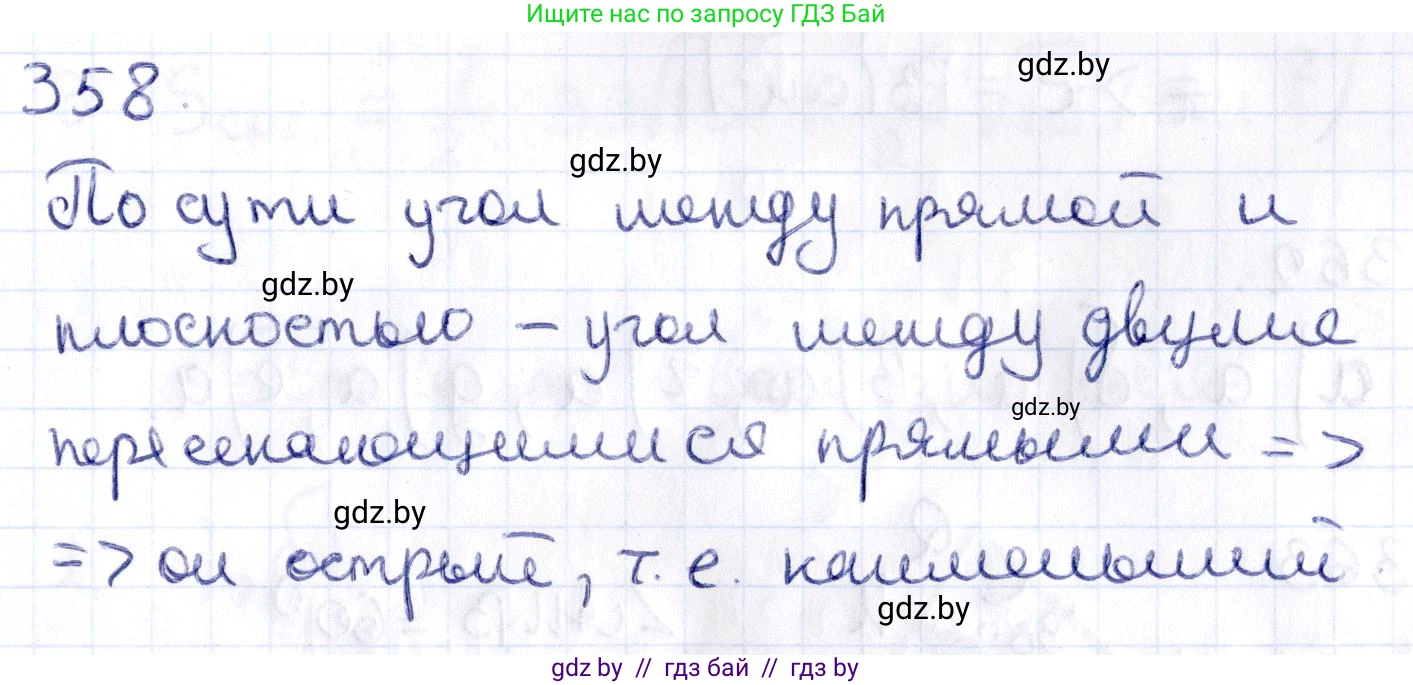 Ищите нас по запросу ГДЗ Бай
gdz.by
358.
gdz.by
По сути угол между прямой и
gdz.by
плоскостью – угол между двумя
gdz.by
пересекающимися прямыми =>
gdz.by
=> он острый, т.е. наименьший
gdz.by
gdz by // гдз бай // гдз by